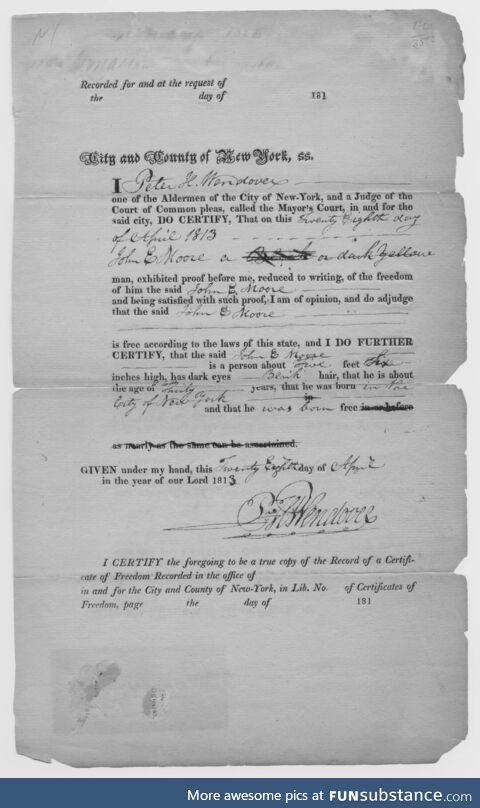 Recorded for and at the request of
the day of 181
City and County of New York, ss.
I Peter H. Wendover
one of the Aldermen of the City of New-York, and a Judge of the
Court of Common pleas, called the Mayor's Court, in and for the
said city, DO CERTIFY, That on this twenty Eighth day
of April 1813
John E Moore a Black or dark yellow
man, exhibited proof before me, reduced to writing, of the freedom
of him the said John E Moore
and being satisfied with such proof, I am of opinion, and do adjudge
that the said John E Moore
is free according to the laws of this state, and I DO FURTHER
CERTIFY, that the said John E Moore
is a person about five feet Six
inches high, has dark eyes Black hair, that he is about
the age of Thirty years, that he was born in the
City of New York in
and that he was born free in or before
as nearly as the same can be ascertained.
GIVEN under my hand, this Twenty Eighth day of April
in the year of our Lord 1813
P. H. Wendover
I CERTIFY the foregoing to be a true copy of the Record of a Certifi-
cate of Freedom Recorded in the office of
in and for the City and County of New-York, in Lib. No. of Certificates of
Freedom, page the day of 181
More awesome pics at FUNsubstance.com